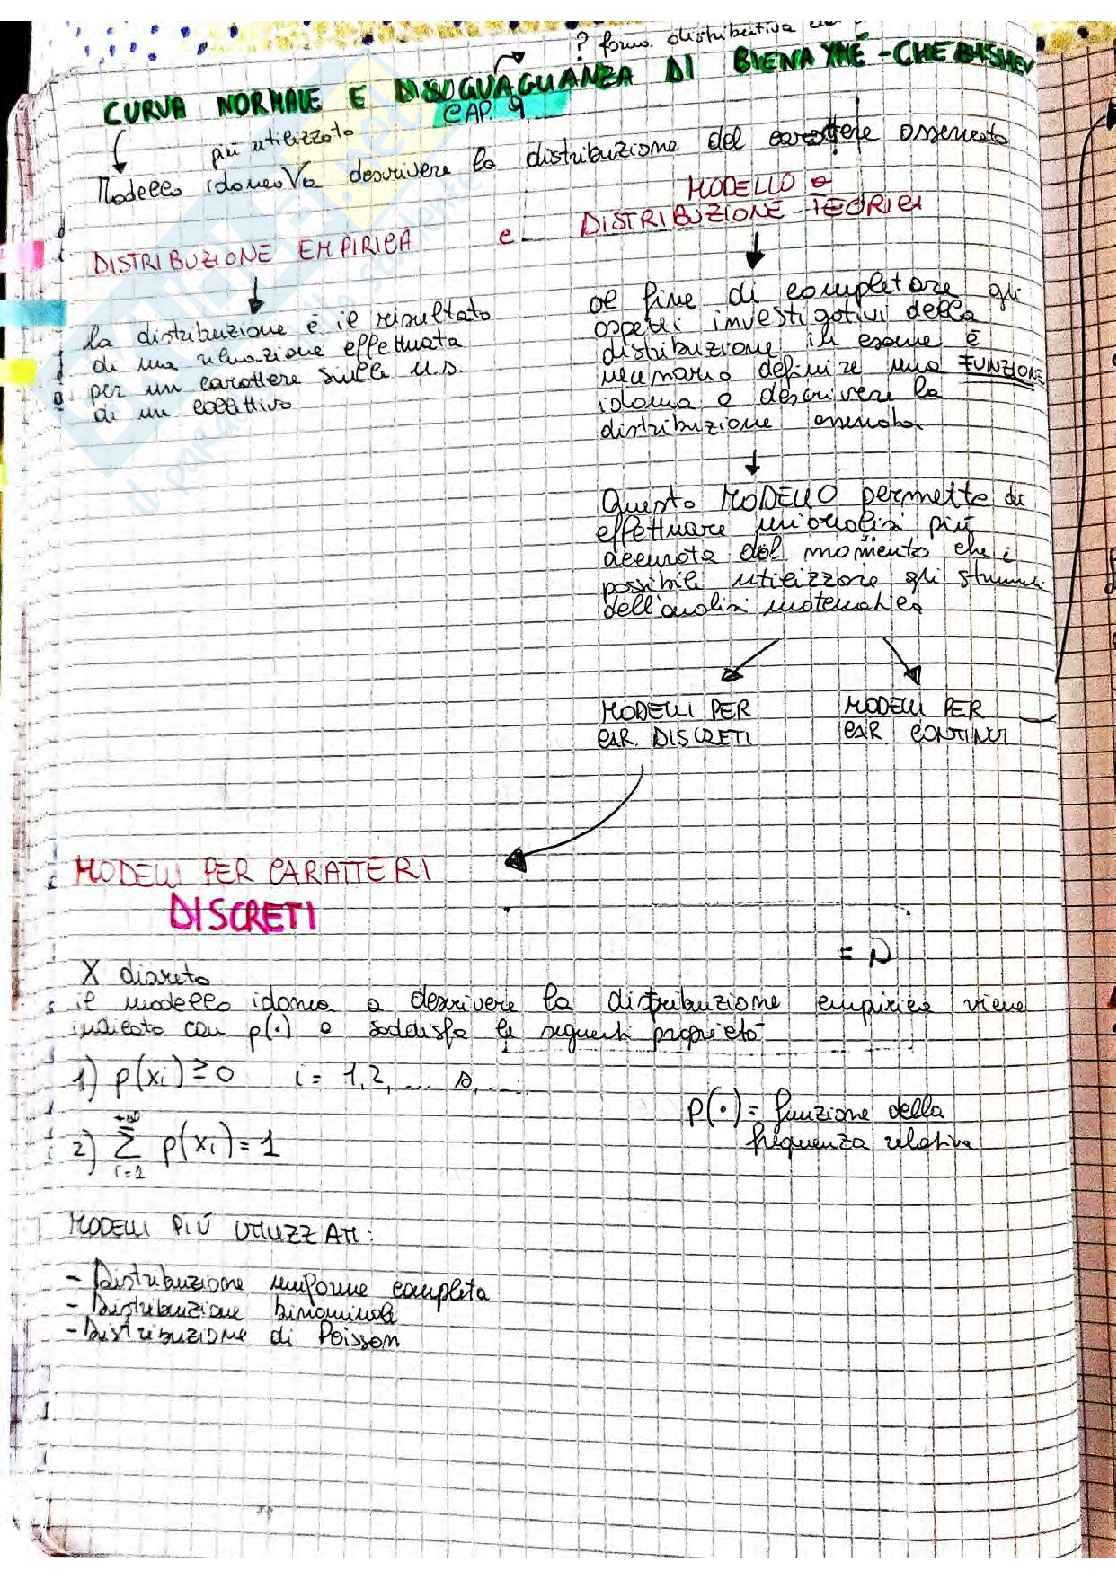 ? forma distributiva
CURVA NORMALE E DISUGUAGLIANZA DI BIENAYMÉ-CHEBISHEV
CAP. 9
più utilizzato
Modello idoneo a descrivere la distribuzione del carattere osservato
DISTRIBUZIONE EMPIRICA e MODELLO o
DISTRIBUZIONE TEORICA
la distribuzione è il risultato
di una rilevazione effettuata
per un carattere sulle u.s.
di un collettivo
al fine di completare gli
aspetti investigativi della
distribuzione in esame è
necessario definire una FUNZIONE
idonea a descrivere la
distribuzione osservata.
Questo MODELLO permette di
effettuare un'analisi più
accurata dal momento che è
possibile utilizzare gli strumenti
dell'analisi matematica
MODELLI PER
CAR. DISCRETI
MODELLI PER
CAR. CONTINUI
MODELLI PER CARATTERI
DISCRETI
= N
X discreto
il modello idoneo a descrivere la distribuzione empirica viene
indicato con p(·) e soddisfa le seguenti proprietà
1) p(xi) ≥ 0 i = 1,2, ... s, ...
p(·) = funzione della
frequenza relativa
2) +∞ Σ i=1 p(xi) = 1
MODELLI PIÙ UTILIZZATI:
- Distribuzione uniforme completa
- Distribuzione binominali
- Distribuzione di Poisson